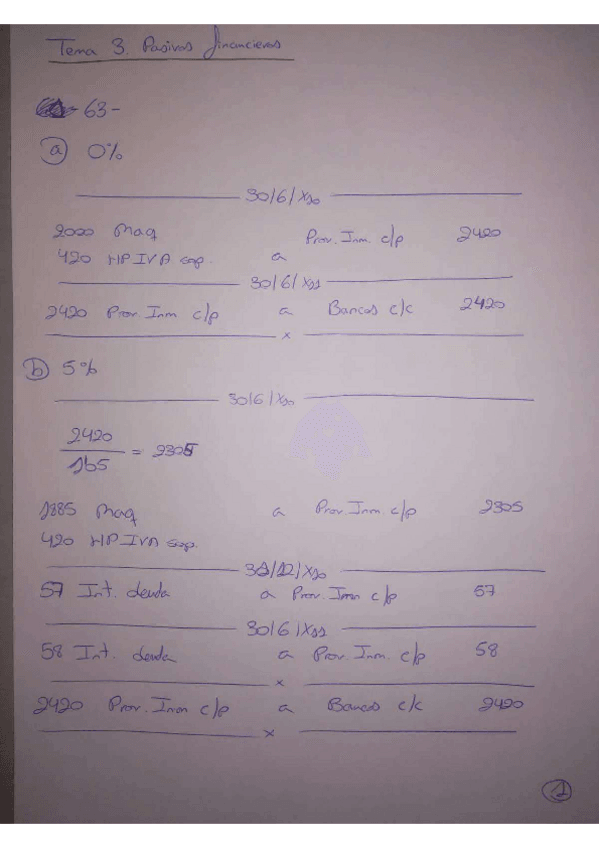 Tema 3. Pasivos financieros
-63-
a) 0%
30/6/X10
2000 Maq Prov. Inm. c/p 2420
420 HP IVA sop. a
30/6/X11
2420 Prov. Inm c/p a Bancos c/c 2420
x
b) 5%
30/6/X10
2420
1'05 = 2305
1885 Maq a Prov. Inm. c/p 2305
420 HP IVA sop.
31/12/X10
57 Int. deuda a Prov. Inm c/p 57
30/6/X11
58 Int. deuda a Prov. Inm. c/p 58
x
2420 Prov. Inm c/p a Bancos c/c 2420
x
1